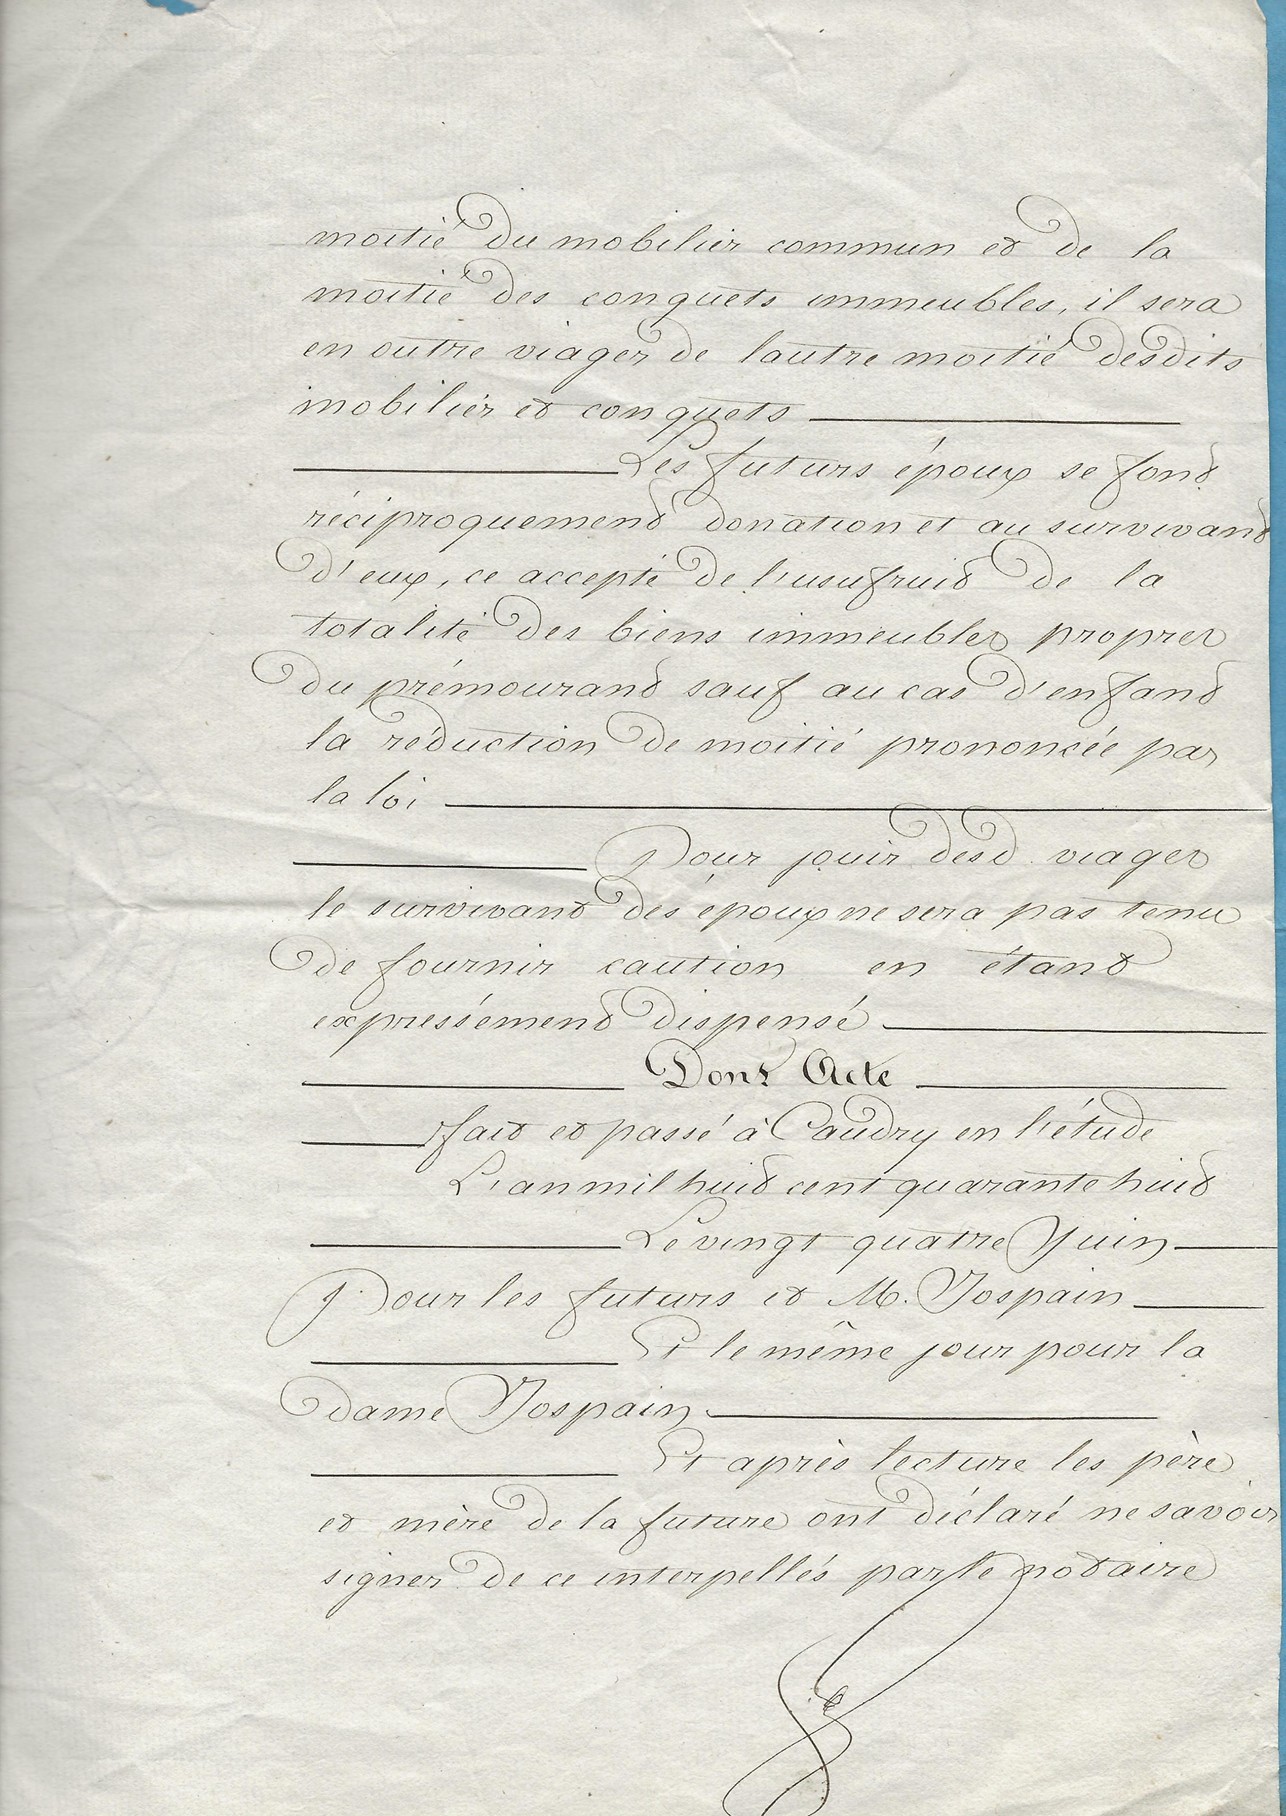 moitié du mobilier commun et de la
moitié des conquets immeubles, il sera
en outre viager de lautre moitié desdits
mobilier et conquets
Les futurs époux se font
réciproquement donation et au survivant
d'eux, ce accepté de l'usufruit de la
totalité des biens immeubles propres
du prémourant sauf au cas d'enfant
la réduction de moitié prononcée par
la loi
Pour jouir desd. viages
le survivant des époux ne sera pas tenu
de fournir caution en étant
expressément dispensé
Dont Acte
fait et passé à Caudry en l'étude
L'an mil huit cent quarante huit
Le vingt quatre Juin
Pour les futurs et M. Jospain
Et le même jour pour la
dame Jospain
Et après lecture les père
et mère de la future ont déclaré ne savoir
signer de ce interpellés par le notaire